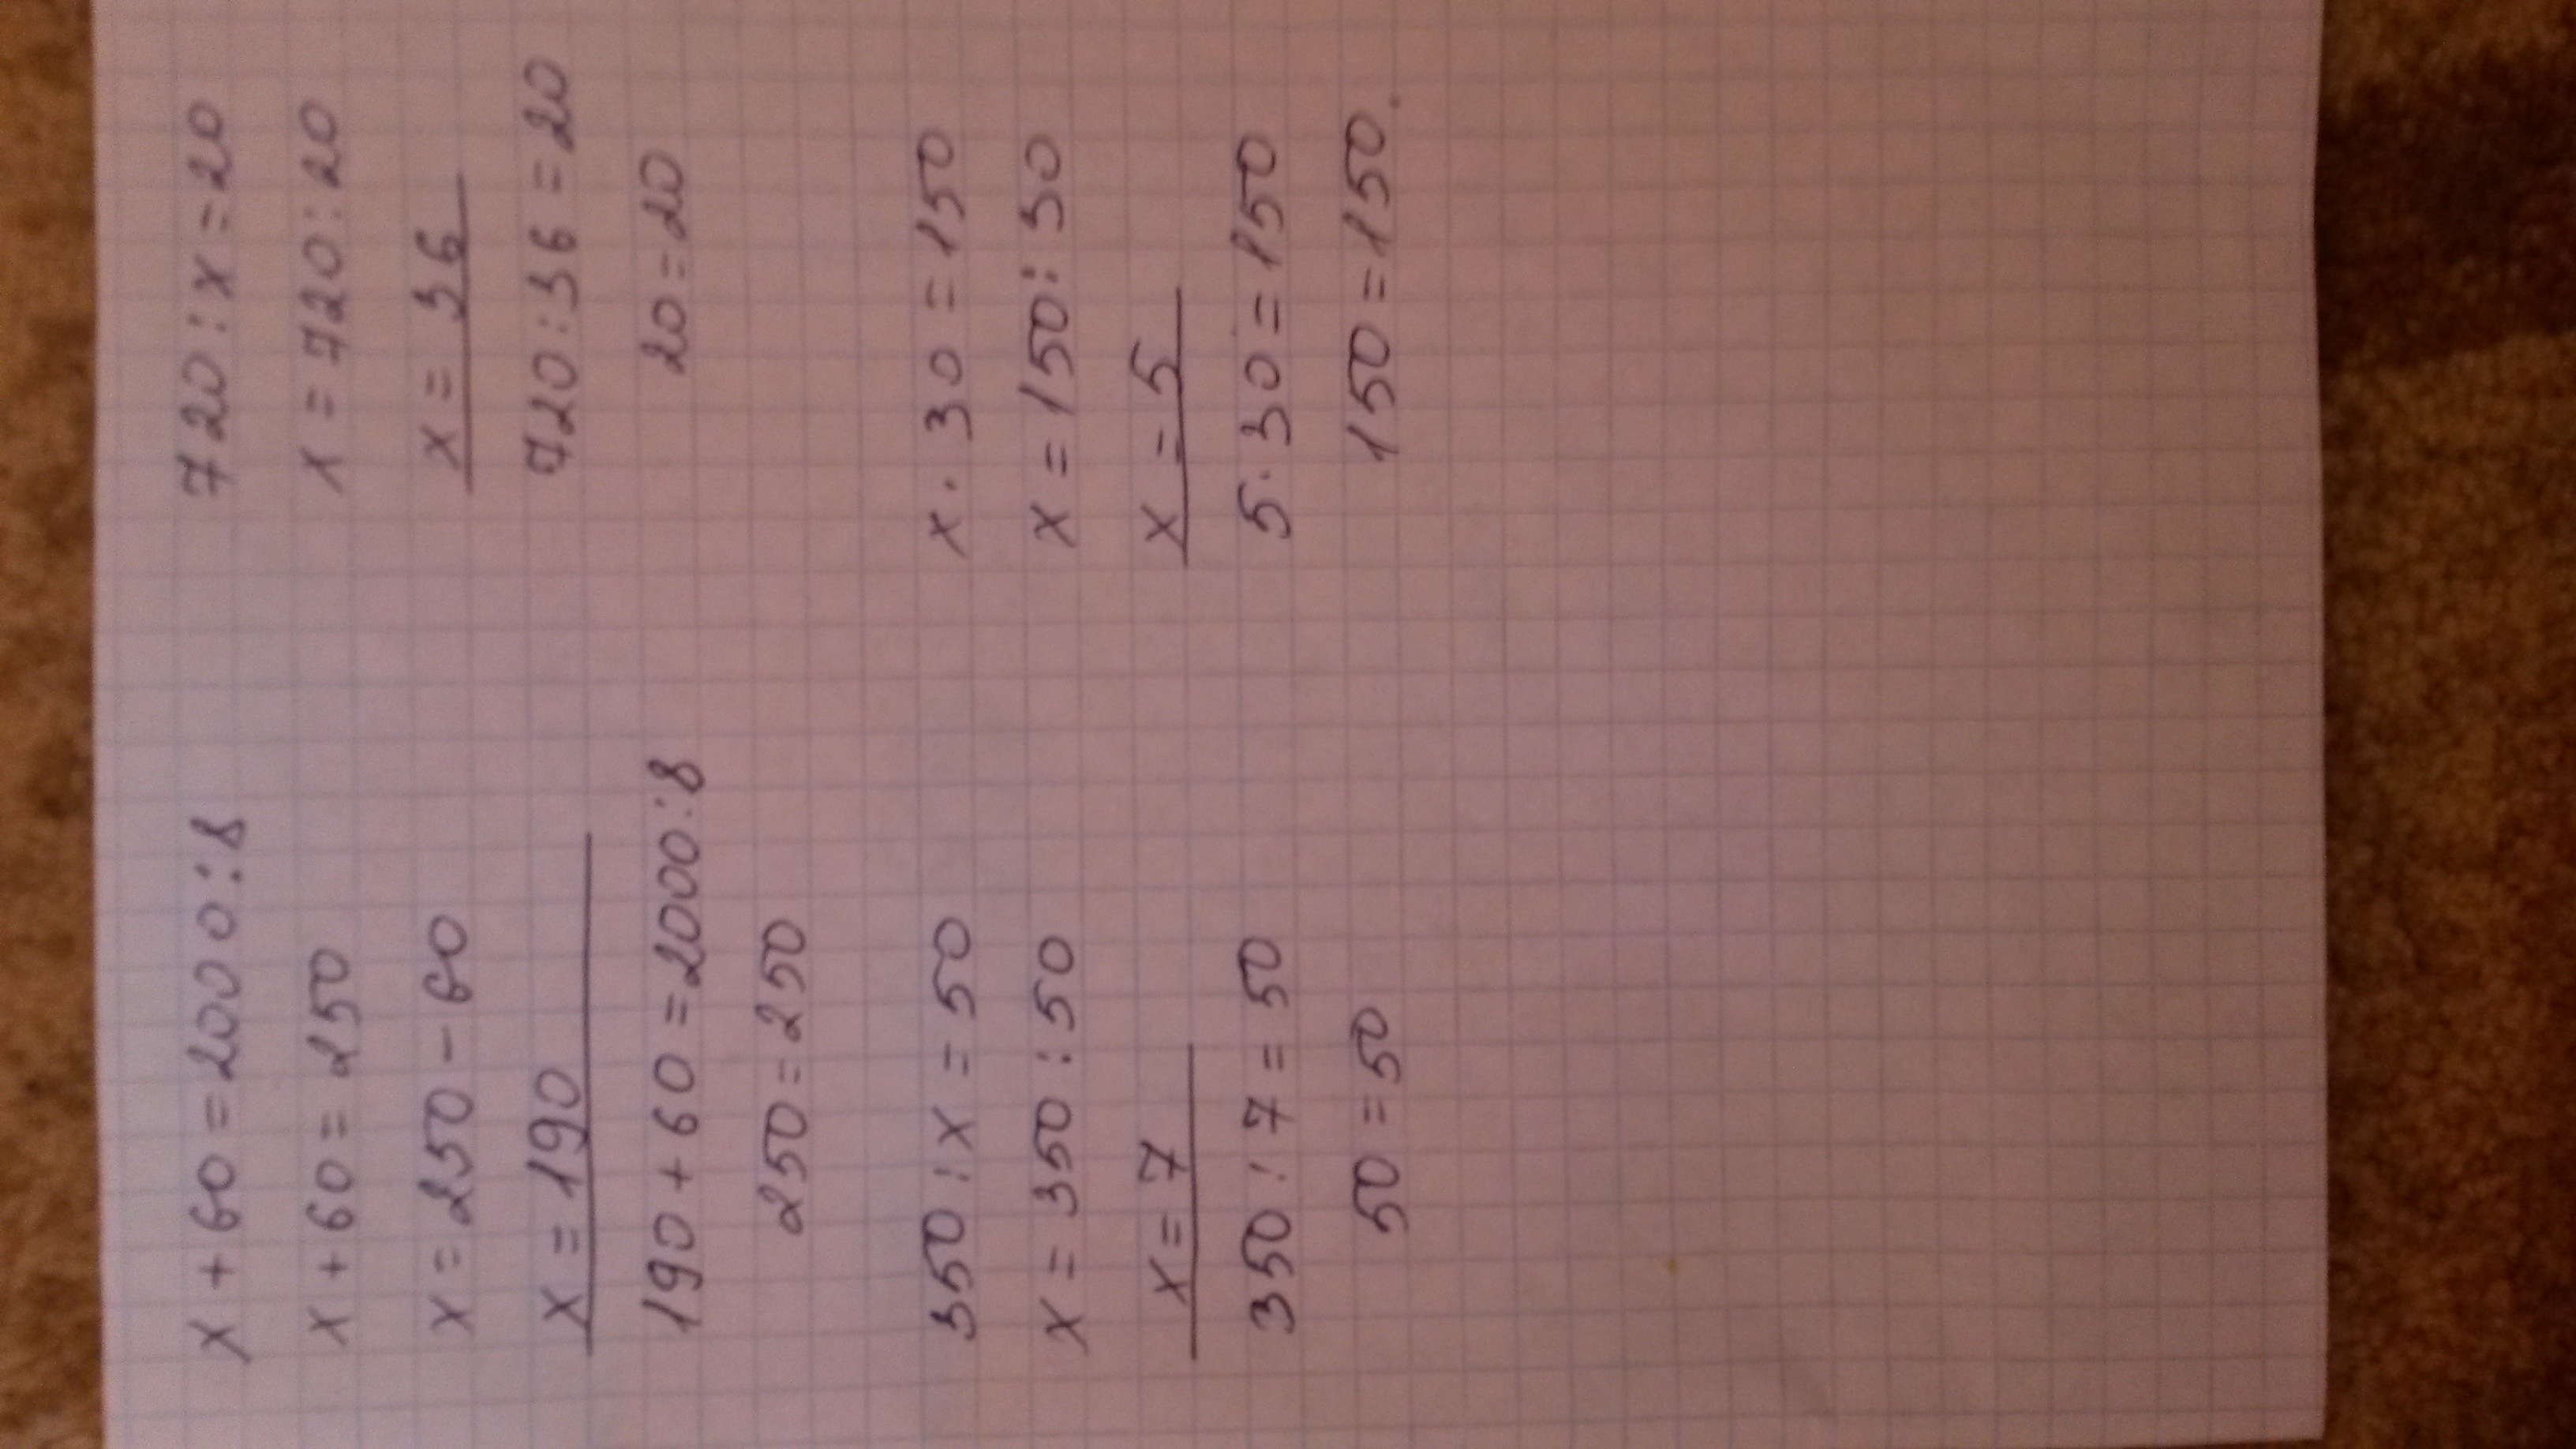 x + 60 = 2000 : 8
x + 60 = 250
x = 250 - 60
x = 190
190 + 60 = 2000 : 8
250 = 250
720 : x = 20
x = 720 : 20
x = 36
720 : 36 = 20
20 = 20
350 : x = 50
x = 350 : 50
x = 7
350 : 7 = 50
50 = 50
x · 30 = 150
x = 150 : 30
x = 5
5 · 30 = 150
150 = 150.